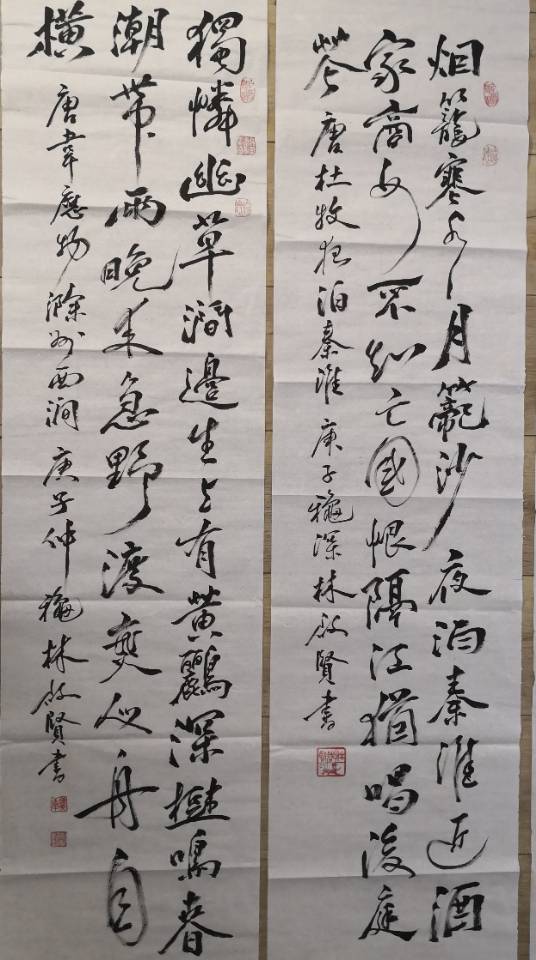 烟籠寒水月籠沙夜泊秦淮近酒
家商女不知亡國恨隔江猶唱後庭
花 唐杜牧泊秦淮 庚子龝深林啟賢書
獨憐幽草澗邊生上有黄鸝深樹鳴春
潮帶雨晚来急野渡無人舟自
横 唐韋應物滁州西澗 庚子仲龝林啟賢書